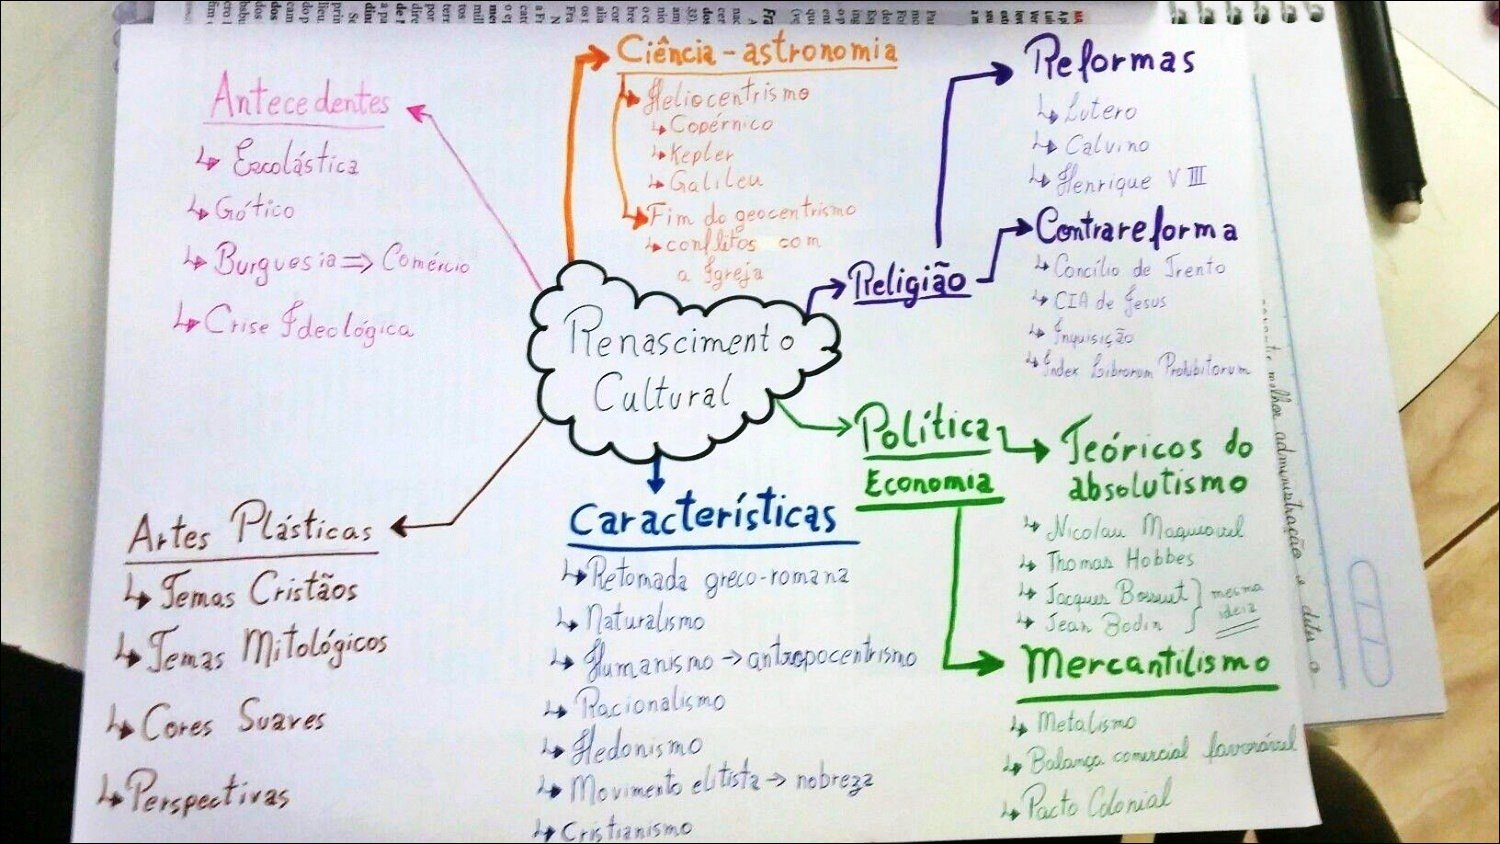 Renascimento
Cultural
Antecedentes
Escolástica
Gótico
Burguesia => Comércio
Crise Ideológica
Ciência - astronomia
Heliocentrismo
Copérnico
Kepler
Galileu
Fim do geocentrismo
conflitos com
a Igreja
Religião
Reformas
Lutero
Calvino
Henrique VIII
Contrareforma
Concílio de Trento
CIA de Jesus
Inquisição
Index Librorum Prohibitorum
Política
Economia
Teóricos do
absolutismo
Nicolau Maquiavel
Thomas Hobbes
Jacques Bossuet
Jean Bodin
mesma
ideia
Mercantilismo
Metalismo
Balança comercial favorável
Pacto Colonial
Características
Retomada greco-romana
Naturalismo
Humanismo → antropocentrismo
Racionalismo
Hedonismo
Movimento elitista → nobreza
Cristianismo
Artes Plásticas
Temas Cristãos
Temas Mitológicos
Cores Suaves
Perspectivas
melhor administração e